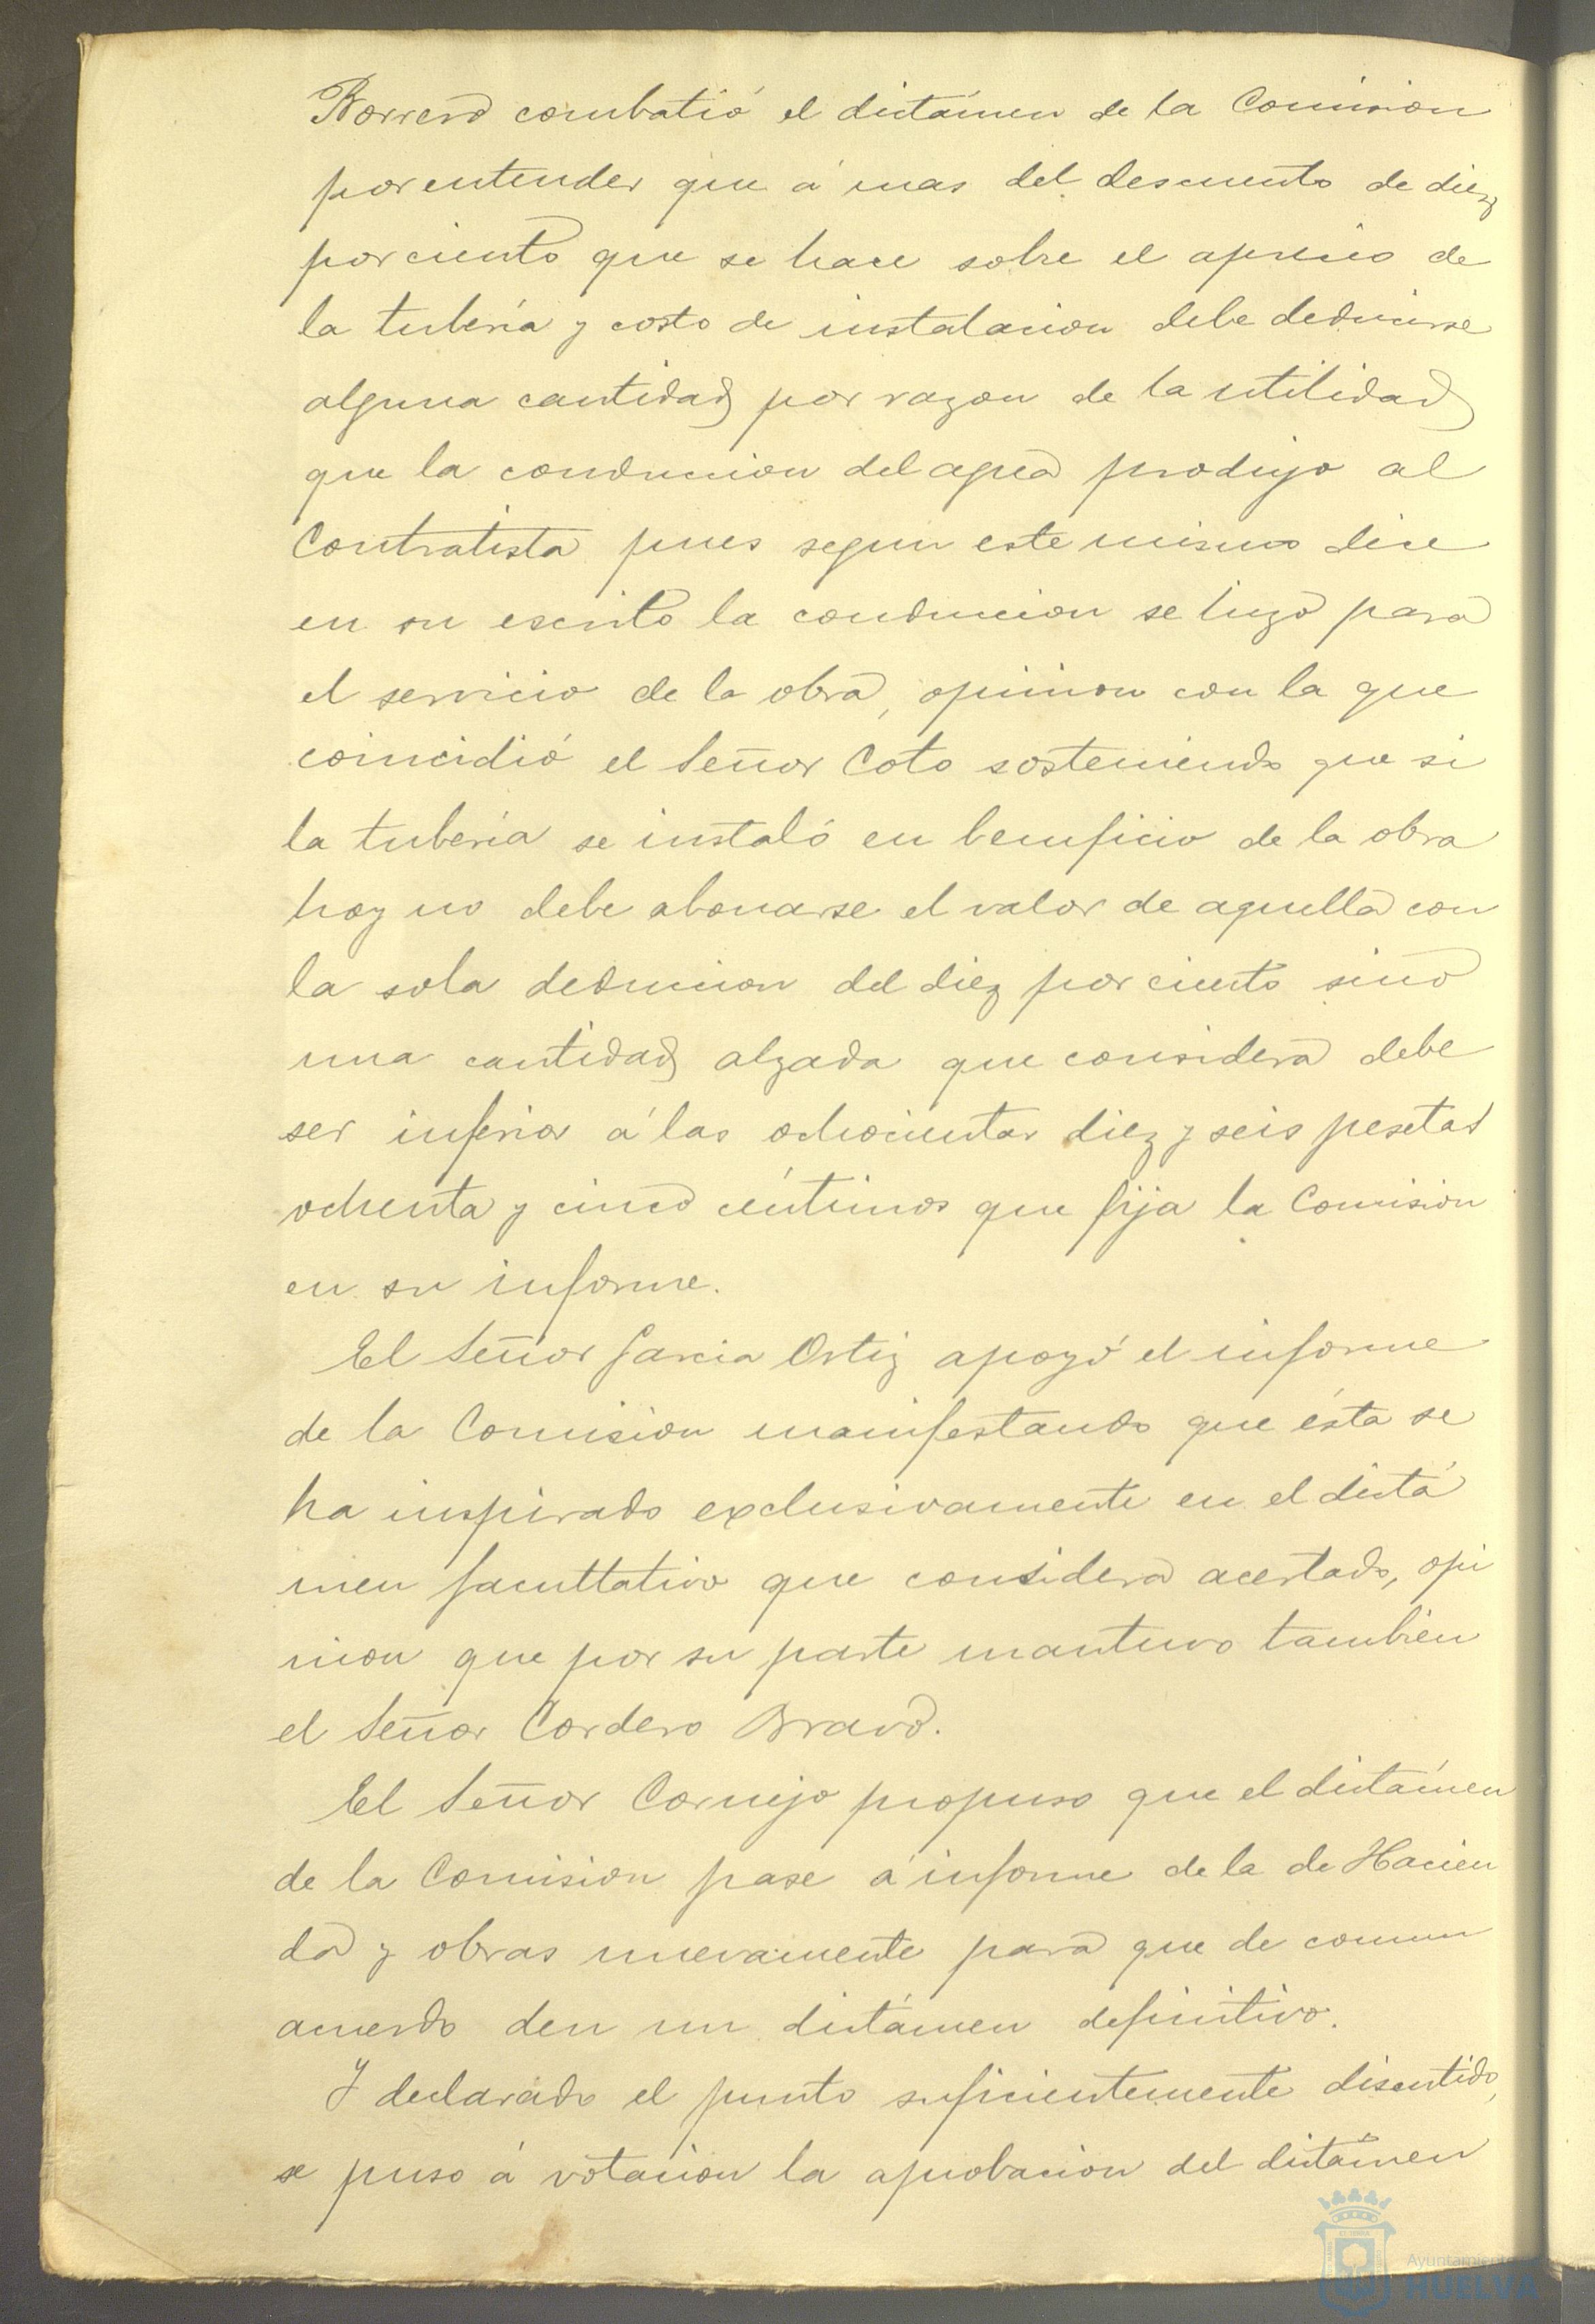 Borrero combatió el dictámen de la Comision
por entender que á mas del descuento de diez
por ciento que se hace sobre el aprecio de
la tubería y costo de instalacion debe deducirse
alguna cantidad por razon de la utilidad
que la conduccion del agua produjo al
Contratista pues segun este mismo dice
en su escrito la conduccion se hizo para
el servicio de la obra, opinion con la que
coincidió el Señor Coto sosteniendo que si
la tubería se instaló en beneficio de la obra
hoy no debe abonarse el valor de aquella con
la sola deduccion del diez por ciento sino
una cantidad alzada que considera debe
ser inferior á las ochocientas diez y seis pesetas
ochenta y cinco céntimos que fija la Comision
en su informe.
El Señor Garcia Ortiz apoyó el informe
de la Comision manifestando que ésta se
ha inspirado exclusivamente en el dictá
men facultativo que considera acertado, opi
nion que por su parte mantuvo tambien
el Señor Cordero Bravo.
El Señor Cornejo propuso que el dictámen
de la Comision pase á informe de la de Hacien
da y obras nuevamente para que de comun
acuerdo den un dictámen definitivo.
Y declarado el punto suficientemente discutido,
se puso á votacion la aprobacion del dictámen
Ayuntamiento
HUELVA